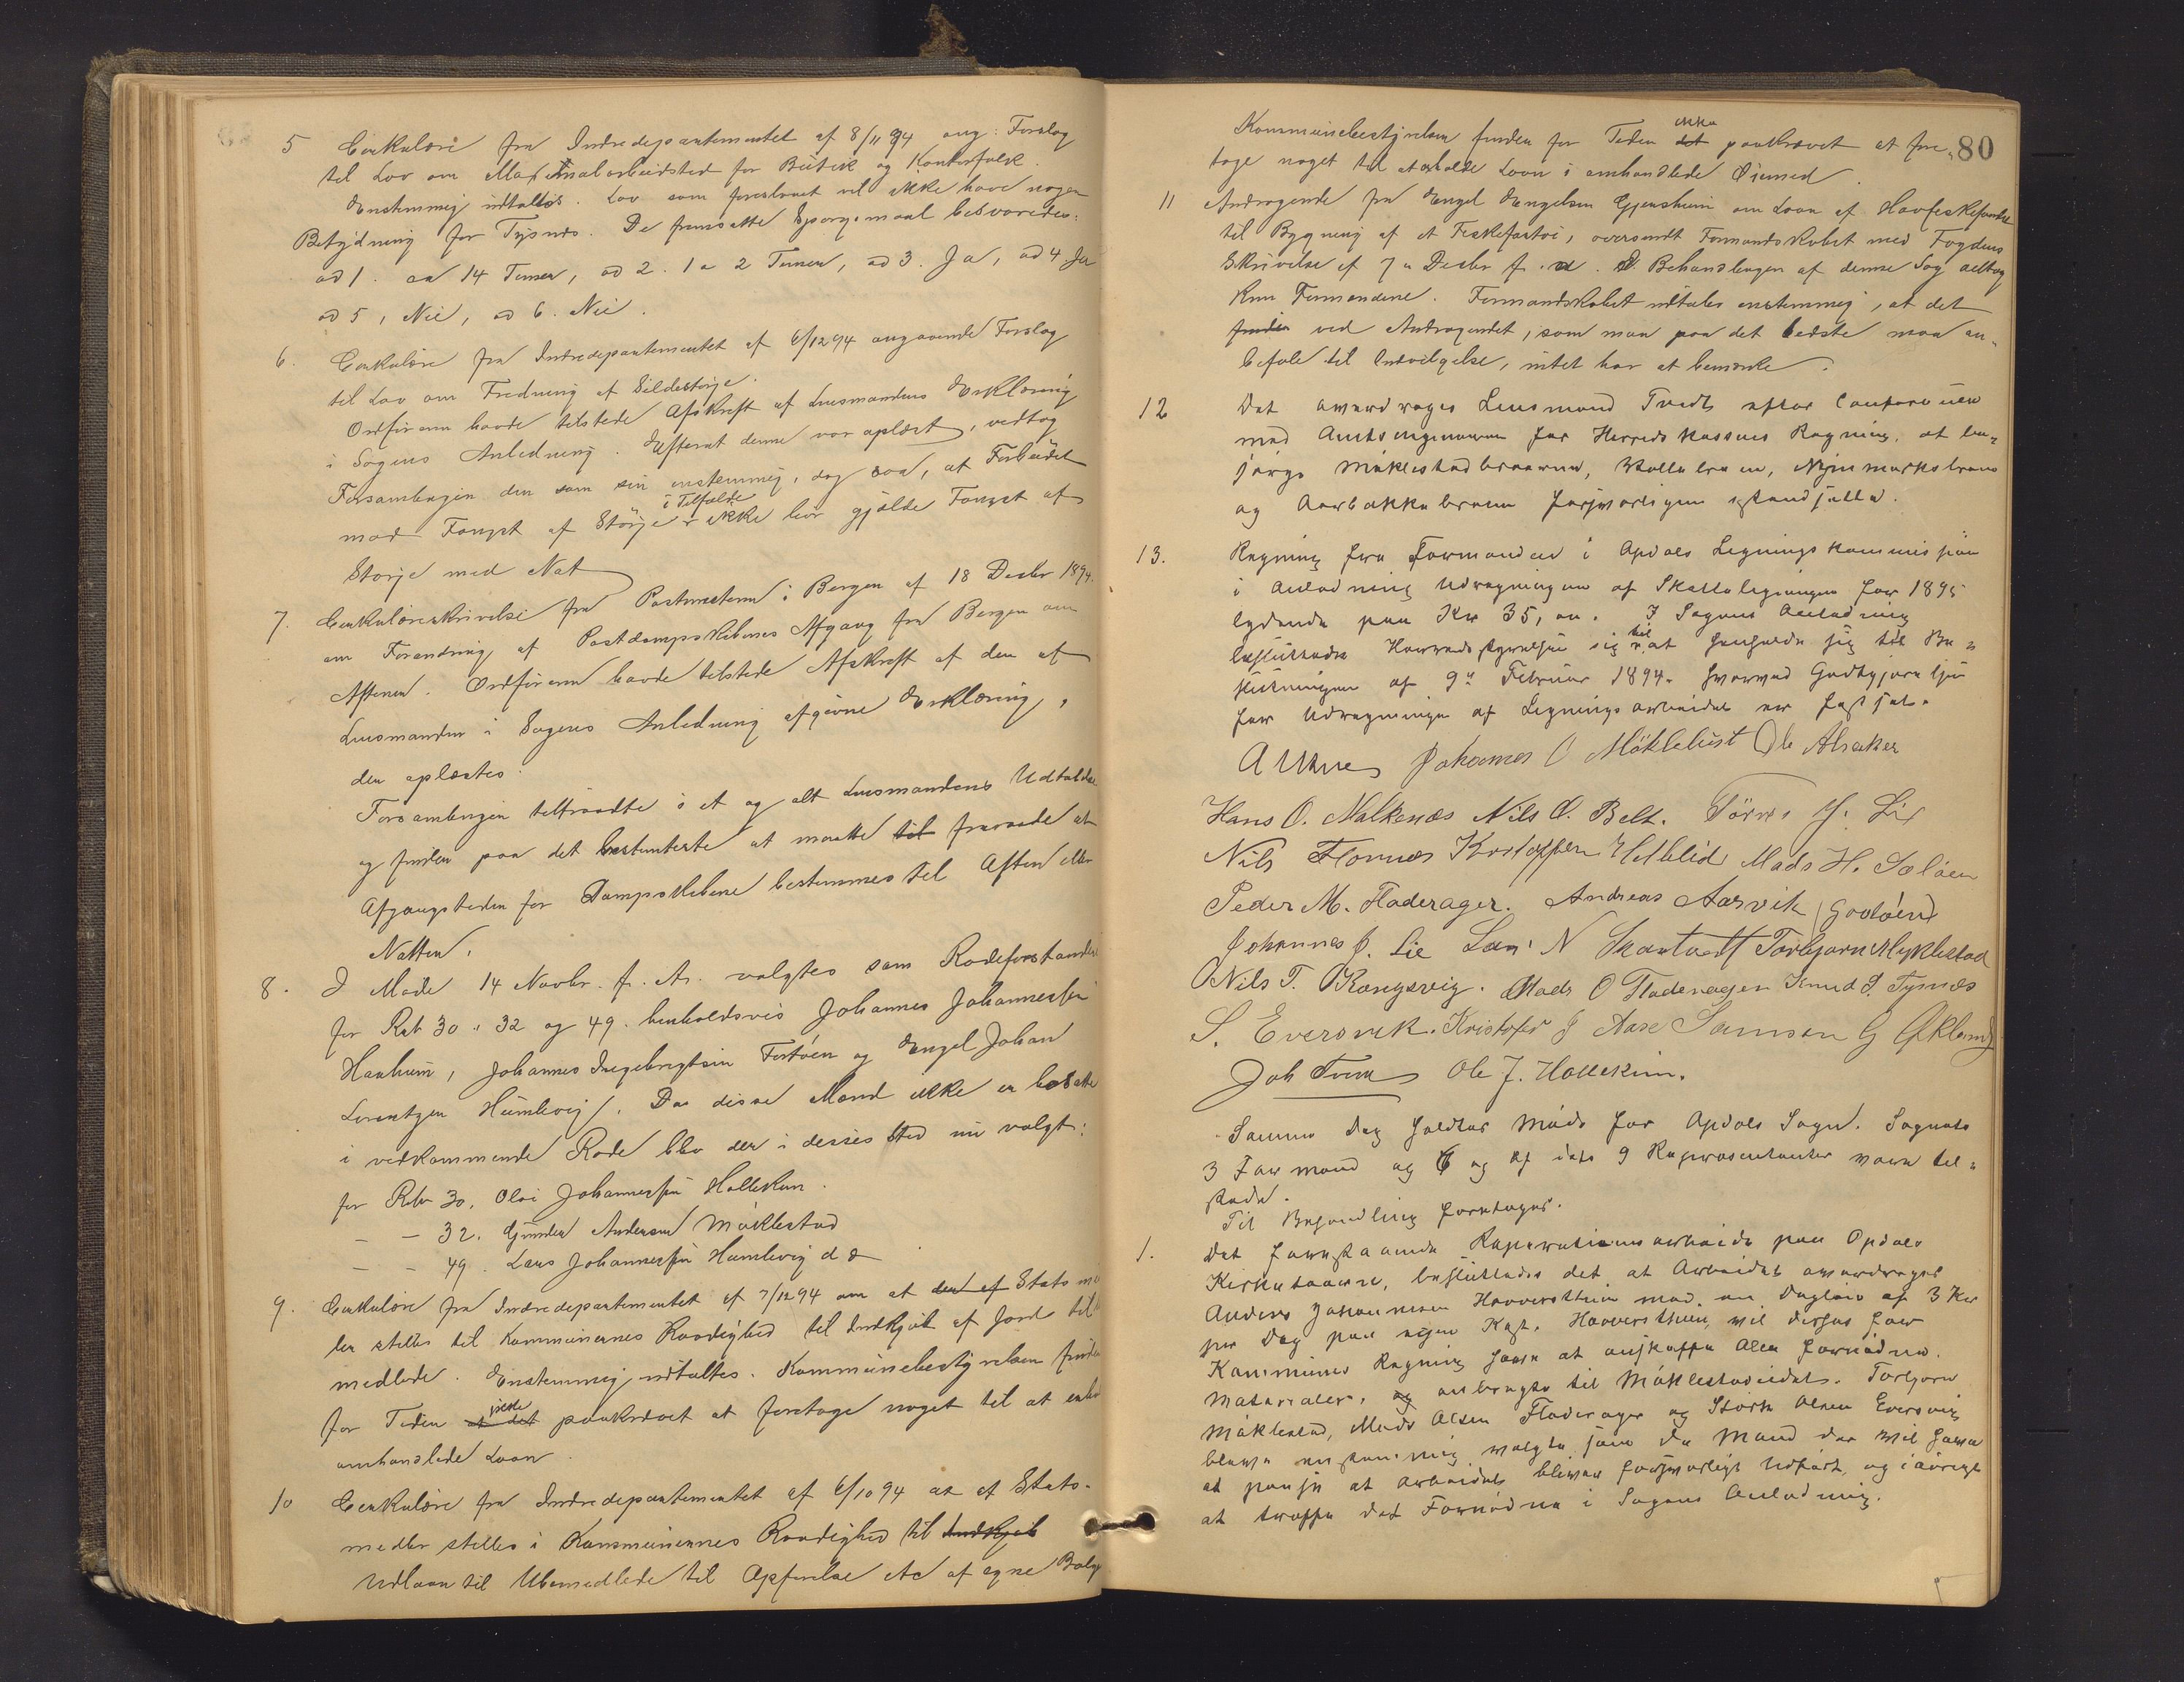 5 Cirkulære fra Indredepartementet af 8/11 94 ang: Forslag
til Lov om Maximalarbeidstid for Butik og Kontorfolk.
Enstemmig udtaltes. Lov som foreslaaet vil ikke have nogen
Betydning for Tysnes. De fremsatte Spørgsmaal besvaredes:
ad 1. ca 14 Timer, ad 2. 1 a 2 Timer, ad 3. Ja, ad 4 Ja
ad 5, Nei, ad 6. Nei.
6. Cirkulære fra Indredepartementet af 6/12 94 angaaende Forslag
til Lov om Fredning af Sildestørje.
Ordføreren havde tilstede Afskrift af Lensmandens Erklæring
i Sagens Anledning. Efterat denne var oplæst, vedtog
Forsamlingen den som sin enstemmig, dog saa, at Forbudet
mod Fangst af Størje i Tilfælde ikke bør gjælde Fangst af
Størje med Not
7. Cirkulæreskrivelse fra Postmesteren i Bergen af 18 Decbr 1894.
om Forandring af Postdampskibenes Afgang fra Bergen om
Aftenen. Ordføreren havde tilstede Afskrift af den af
Lensmanden i Sagens Anledning afgivne Erklæring,
der oplæstes.
Forsamlingen tiltraadte i et og alt Lensmandens Udtalelse
og finder paa det bestemteste at maatte til fraraade at
Afgangstiden for Dampskibene bestemmes til Aften eller
Natten.
8. I Møde 14 Novbr. f. Ar. valgtes som Rodeforstander
for Rob 30, 32 og 49. henholdsvis Johannes Johannessen
Hauheim, Johannes Ingebrigtsen Tertøen og Engel Johan
Lorentzen Humlevig. Da disse Mænd ikke er bosatte
i vedkommende Rode blev der i desses Sted nu valgt:
for Rode 30. Olai Johannessen Hollekim.
— — 32. Gunder Andersen Møklestad
— — 49. Lars Johannessen Humlevig d æ
9. Cirkulære fra Indredepartementet af 7/12 94 om at der af Statsmid
ler stilles til Kommunernes Raadighed til Indkjøb af Jord til
medlede. Enstemmig udtaltes. Kommunebestyrelsen finder
for Tiden at det ikke paakrævet at foretage noget til at erhol
omhandlede Laan
10 Cirkulære fra Indredepartementet af 6/10 94 at af Stats-
medler stilles i Kommunernes Raadighed til Indkjøb
Udlaan til Ubemedlede til Opførelse etc af egne Bolig
80
Kommunebestyrelsen finder for Tiden det ikke paakrævet at fore-
tage noget til at erholde Laan i omhandlede Øiemed.
11 Andragende fra Engel Engelsen Gjersheim om Laan af Havfiskefondet
til Bygning af et Fiskefartøi, oversendt Formandskabet med Fogdens
Skrivelse af 7de Decbr f. A. I Behandlingen af denne Sag deltog
kun Formændene. Formandskabet udtaler enstemmig, at det
finder ved Andragendet, som man paa det bedste maa an-
befale til Indvilgelse, intet har at bemærke.
12 Det overdrages Lensmand Tvedt efter Conference
med Amtsingeniøren for Herredskassens Regning, at be-
sørge Møklestadbroerne, Wollebroen, Nymarksbroen
og Aarbakkebroen forsvarligen istandsatte.
13. Regning fra Formanden i Opdals Ligningskommission
i Anledning Udregningen af Skatteligningen for 1895
lydende paa Kr 35,00. I Sagens Anledning
besluttede Herredsstyrelsen sig til at henholde sig til Be-
slutningen af 9de Februar 1894. hvorved Godtgjørelsen
for Udregningen af Ligningsarbeidet er fastsat.
A Uknes Johannes O Möklebust Ole Alsaker
Hans O. Malkenæs Nils O. Belt. Tørres H. Lie
Nils Flornes Kristoffer Helblid Mads H. Soløen
Peder M. Fladerager. Andreas Aarvik Godøend
Johannes J. Lie Lars N Skartvedt Torbjørn Myklestad
Nils T. Kongsvig. Mads O Fladerager Knud S. Tysnæs
S. Eversvik. Kristofer J Aase Samson G Økland
Joh Tveit Ole J. Hollekim.
Samme Dag holdtes Møde for Opdals Sogn. Sognets
3 Formænd og 6 og af dets 9 Repræsentanter vare til-
stede.
Til Behandling foretoges.
1. Det forestaaende Reparationsarbeide paa Opdals
Kirketaarn, besluttedes det at Arbeidet overdrages
Anders Johannesen Hovverstheim mod en Dagløn af 3 Kr
per Dag paa egen Kost. Hovverstheim vil desfor for
Kommunens Regning have at anskaffe Alle fornødne
Materialer, og anbragte til Møklestadeidet. Torbjørn
Møklestad, Mads Olsen Fladerager og Størk Olsen Eversvig
bleve enstemmig valgte som de Mænd der vil have
at paase at Arbeidet bliver forsvarligt Udført, og iøvrigt
at træffe det Fornødne i Sagens Anledning.